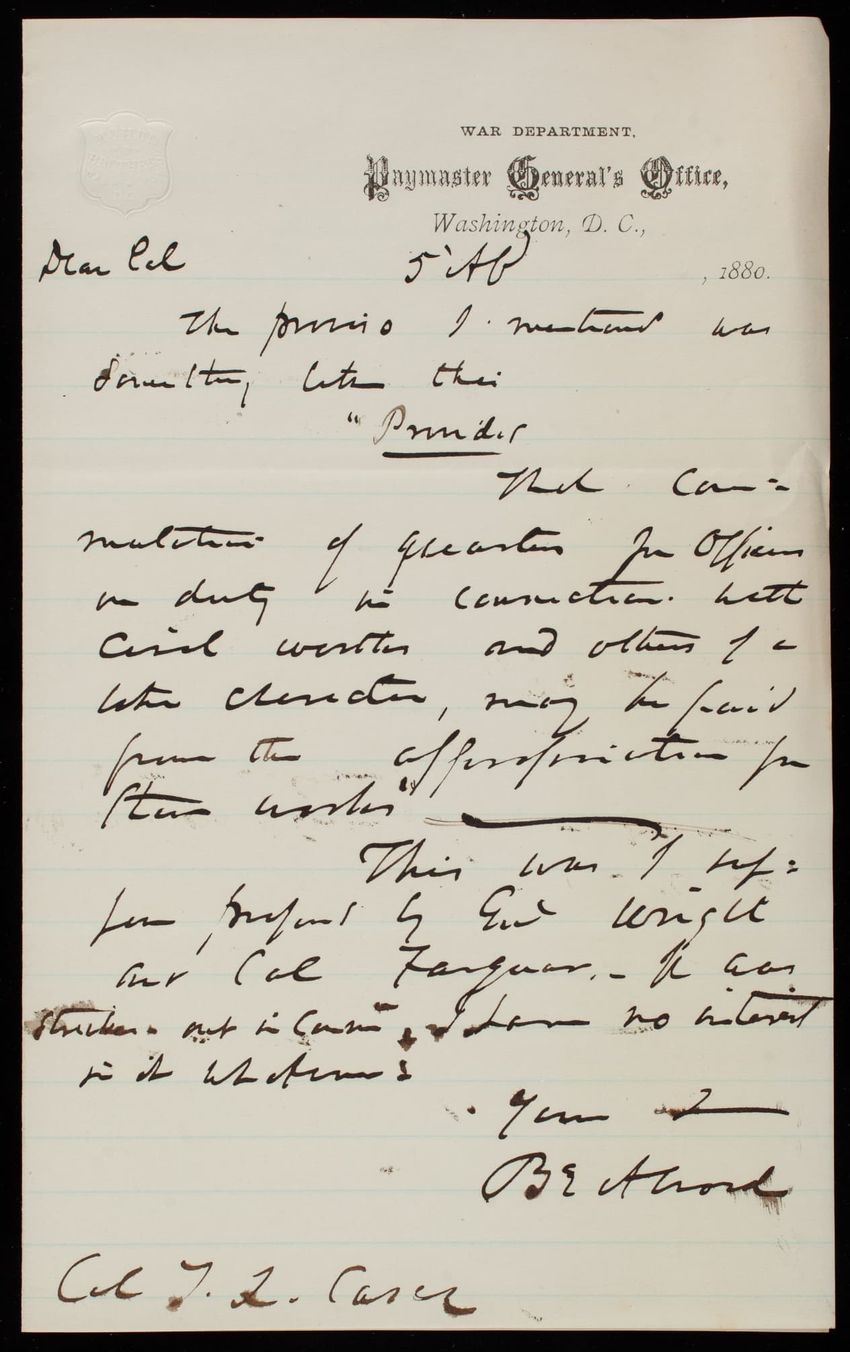 WAR DEPARTMENT.
Paymaster General's Office,
Washington, D. C.,
Dear Col 5' Ap , 1880.
The proviso I mentioned was
something like this
"Provided
That Com=
mutation of quarters for Officers
on duty in connection with
Civil works and others of a
like character, may be paid
from the appropriation for
those works"
This was I sup=
pose prepared by Genl Wright
and Col Farquar. - It was
stricken out in Comm, I have no interest
in it whatever.
Yours
B Alvord
Col T. L. Casey